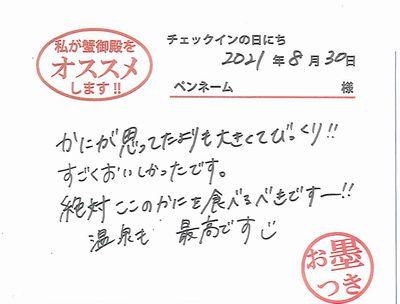 私が蟹御殿を
オススメ
します!!
チェックインの日にち
2021年8月30日
ペンネーム 様
かにが思ってたよりも大きくてびっくり!!
すごくおいしかったです。
絶対ここのかにを食べるべきですー!!
温泉も 最高ですじ
お墨
つき